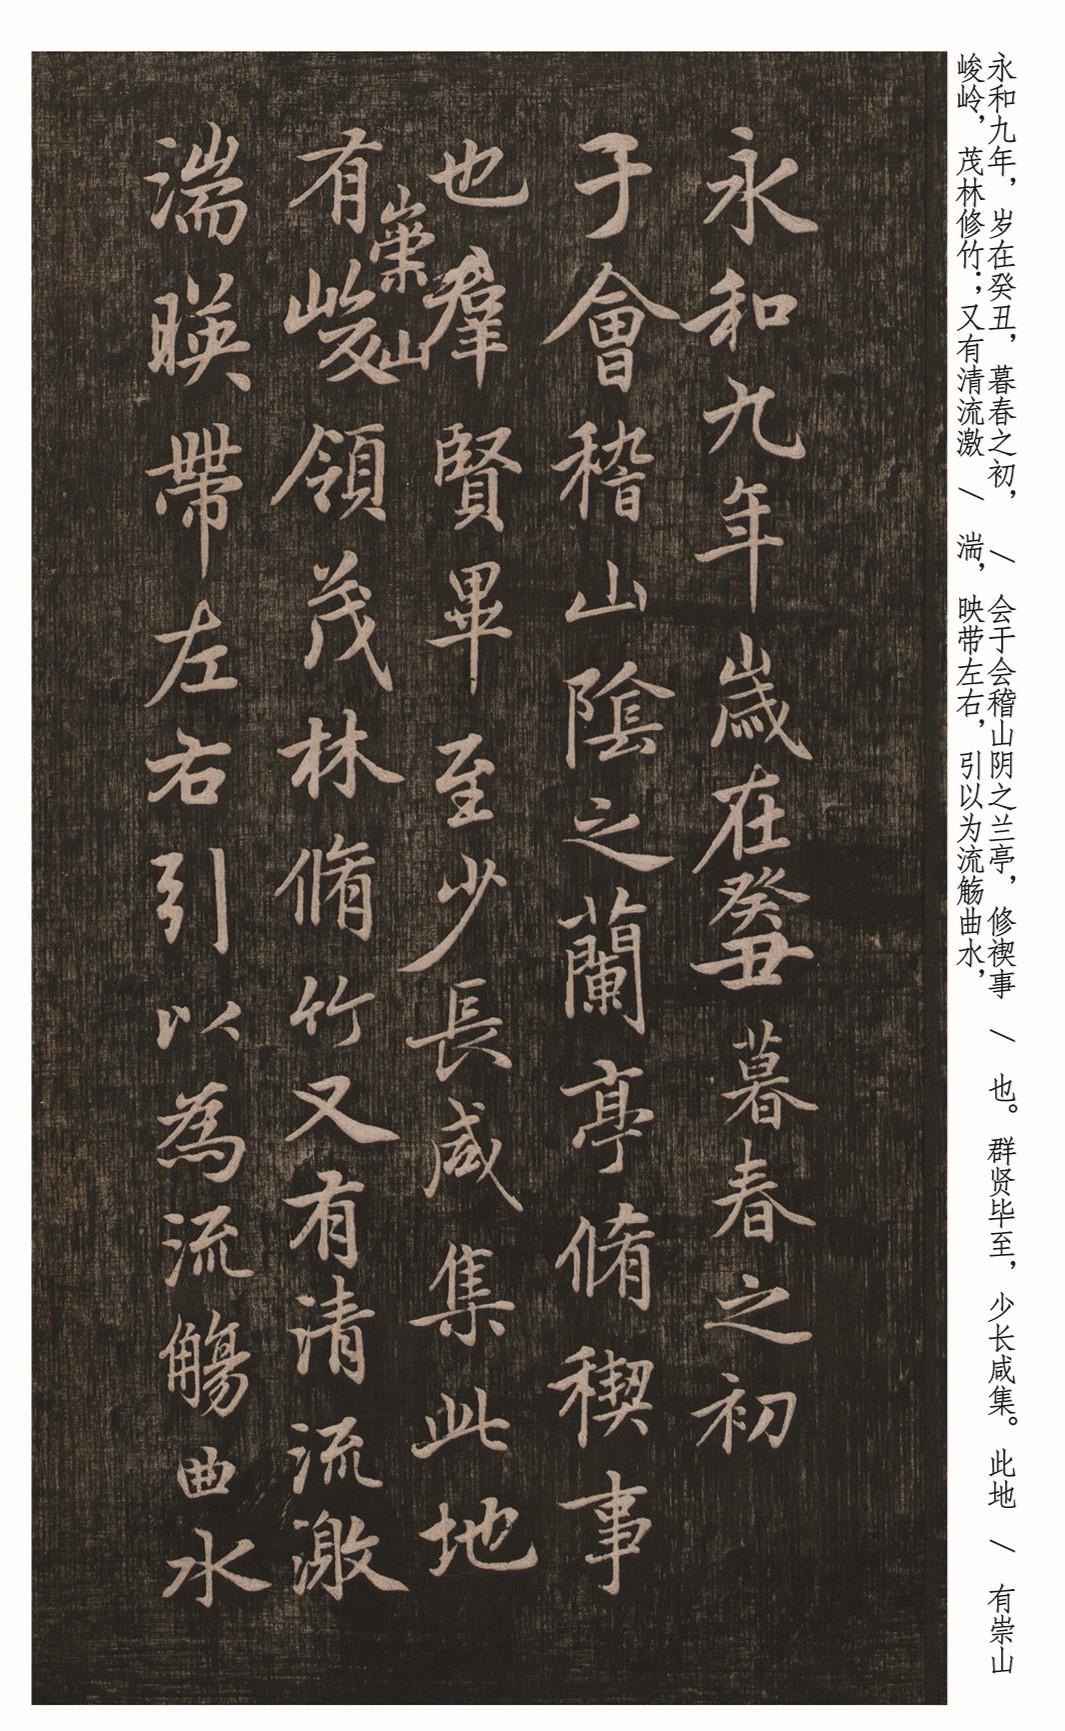 永和九年，岁在癸丑，暮春之初，／会于会稽山阴之兰亭，修禊事／也。群贤毕至，少长咸集。此地／有崇山
峻岭，茂林修竹；又有清流激／湍，映带左右，引以为流觞曲水，
永和九年歲在癸丑暮春之初
于會稽山陰之蘭亭脩稧事
也羣賢畢至少長咸集此地
有崇山峻領茂林脩竹又有清流激
湍暎帶左右引以為流觴曲水